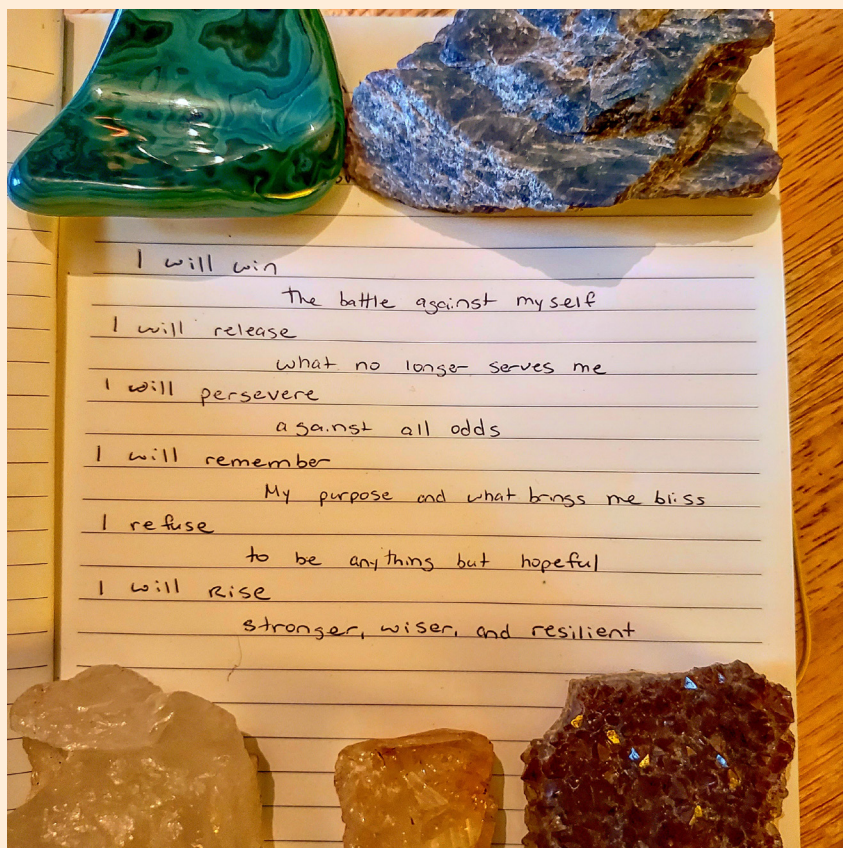 I will win
the battle against myself
I will release
what no longer serves me
I will persevere
against all odds
I will remember
My purpose and what brings me bliss
I refuse
to be anything but hopeful
I will Rise
stronger, wiser, and resilient